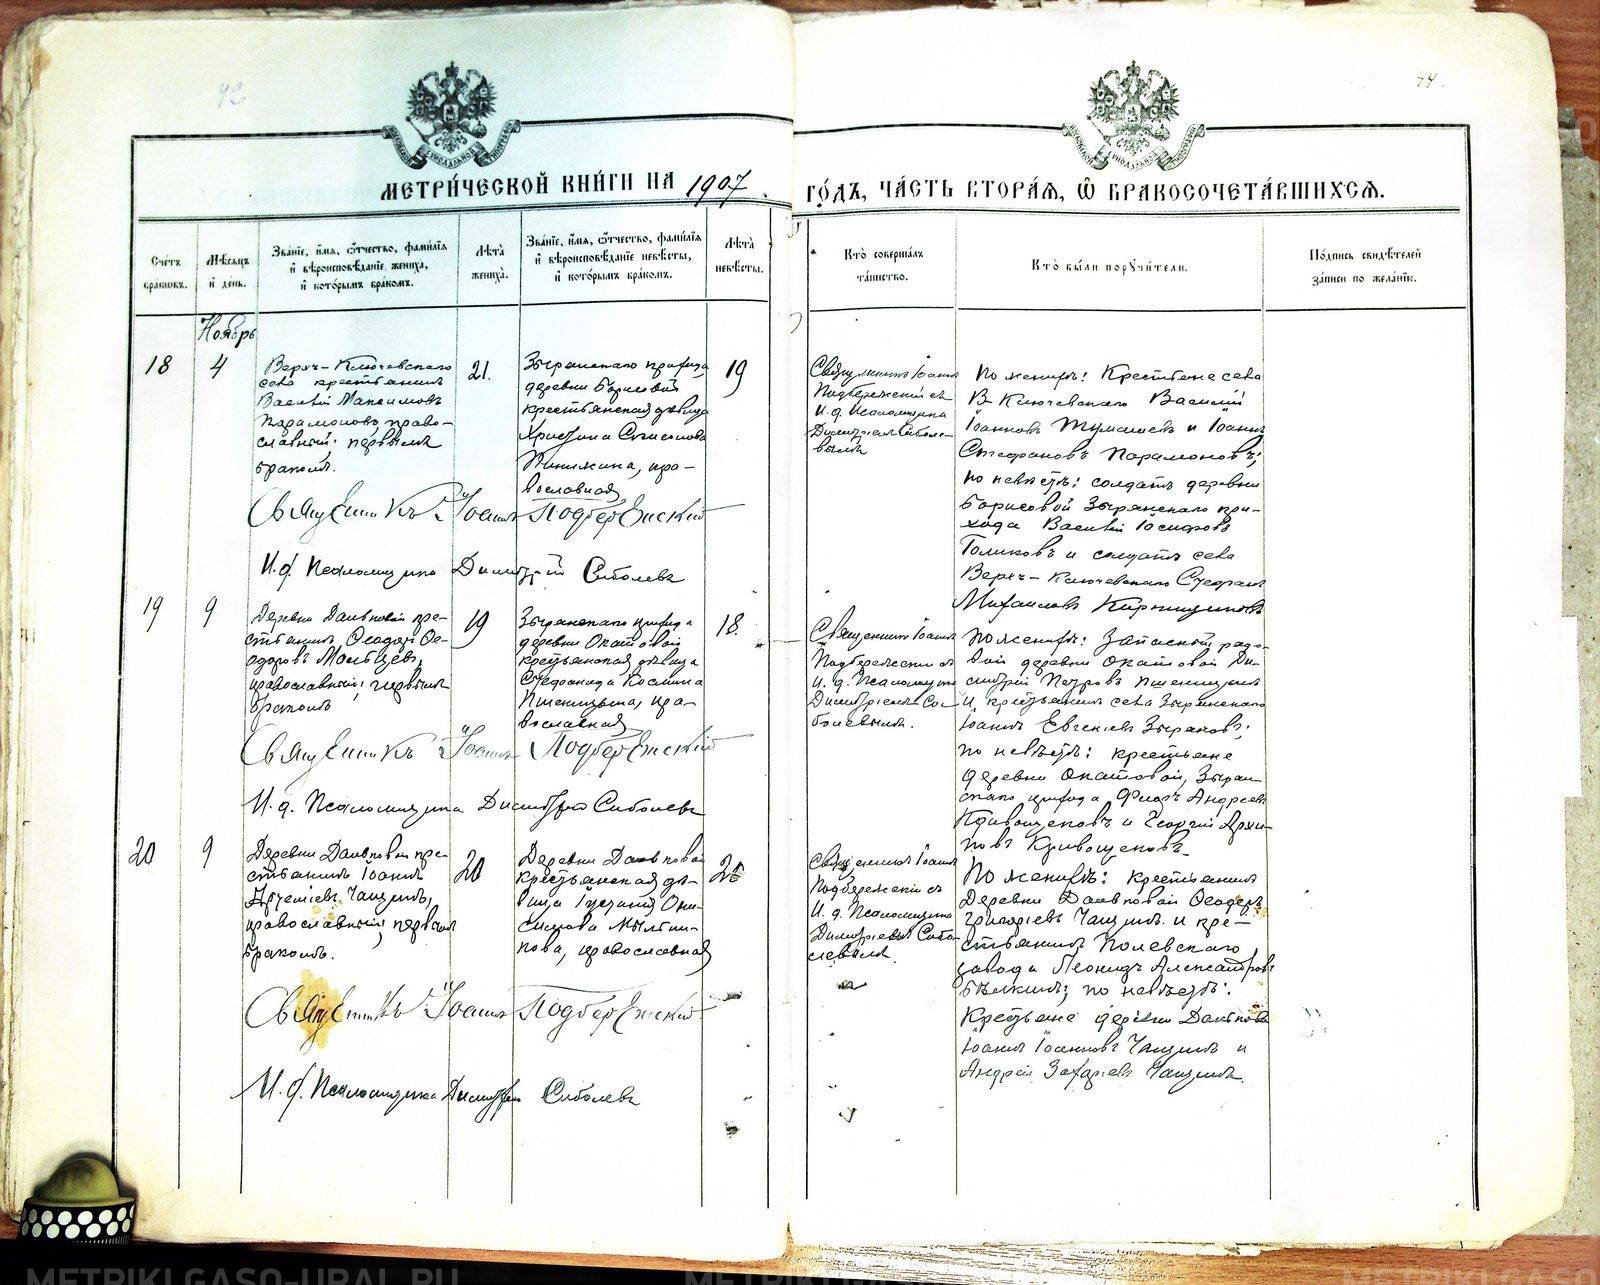 74.
МЕТРИ́ЧЕСКОЙ КНИ́ГИ НА 1907 ГО́ДЪ, ЧА́СТЬ ВТОРА́Я, Ѡ БРАКОСОЧЕТА́ВШИХСЯ.
Счетъ браковъ.
Мѣсяцъ и день.
Зва́ніе, и́мя, ѻ́тчество, фами́лія и вѣроисповѣ́даніе жениха̀, и кото́рымъ бра́комъ.
Лѣта̀ жениха̀.
Зва́ніе, и́мя, ѻ́тчество, фами́лія и вѣроисповѣ́даніе невѣ́сты, и кото́рымъ бра́комъ.
Лѣта̀ невѣ́сты.
Кто̀ соверша́лъ та́инство.
Кто̀ бы́ли поручи́тели.
По́дпись свидѣ́телей за́писи по жела́нію.
Ноябрь
18
4
Верхъ-Ключевскаго
села крестьянинъ
Василій Максимовъ
Парамоновъ право-
славный; первымъ
бракомъ.
21.
Зырянскаго прихода,
деревни Борисовой
крестьянская дѣвица
Христина
православная
19
Священникъ Іоаннъ
Подбережскій съ
И. д. Псаломщика
Димитріемъ Соболе-
вымъ
По женихѣ: Крестьяне села
В. Ключевскаго Василій
Іоанновъ Тумашевъ и Іоаннъ
Стефановъ Парамоновъ;
по невѣстѣ: солдатъ деревни
Борисовой Зырянскаго при-
хода Василій Іосифовъ
Голиковъ и солдатъ села
Верхъ-Ключевскаго Стефанъ
Михаиловъ
Священникъ Іоаннъ Подбережскій
И. д. Псаломщика Димитрій Соболевъ
19
9
Деревни кре-
стьянинъ Ѳеодоръ Ѳе-
одоровъ
православный; первымъ
бракомъ
19
Зырянскаго прихода
деревни Окатовой
крестьянская дѣвица
Стефанида Космина
Пшеницына, пра-
вославная
18.
Священникъ Іоаннъ
Подбережскій съ
И. д. Псаломщика
Димитріемъ Со-
болевымъ.
По женихѣ: Запасный рядо-
вой деревни Окатовой Ди-
митрій Петровъ Пшеницынъ
и крестьянинъ села Зырянскаго
Іоаннъ Евгеніевъ Зыряновъ;
по невѣстѣ: крестьяне
деревни Окатовой, Зырян-
скаго прихода Андреевъ
Кривощековъ и Георгій Архи-
повъ Кривощековъ.
Священникъ Іоаннъ Подбережскій
И. д. Псаломщика Димитрій Соболевъ
20
9
Деревни кре-
стьянинъ Іоаннъ
Артеміевъ Чащинъ,
православный, первымъ
бракомъ.
20
Деревни
крестьянская дѣ-
вица Іустинія Они-
симова
православная
Священникъ Іоаннъ
Подбережскій съ
И. д. Псаломщика
Димитріемъ Собо-
левымъ.
По женихѣ: крестьянинъ
Деревни Ѳеодоръ
Григорьевъ Чащинъ и кре-
стьянинъ Полевскаго
завода Леонидъ Александровъ
Бѣлкинъ; по невѣстѣ:
Крестьяне деревни
Іоаннъ Іоанновъ Чащинъ и
Андрей Захаріевъ Чащинъ.
Священникъ Іоаннъ Подбережскій
И. д. Псаломщика Димитрій Соболевъ
METRIKI.GASO-URAL.RU